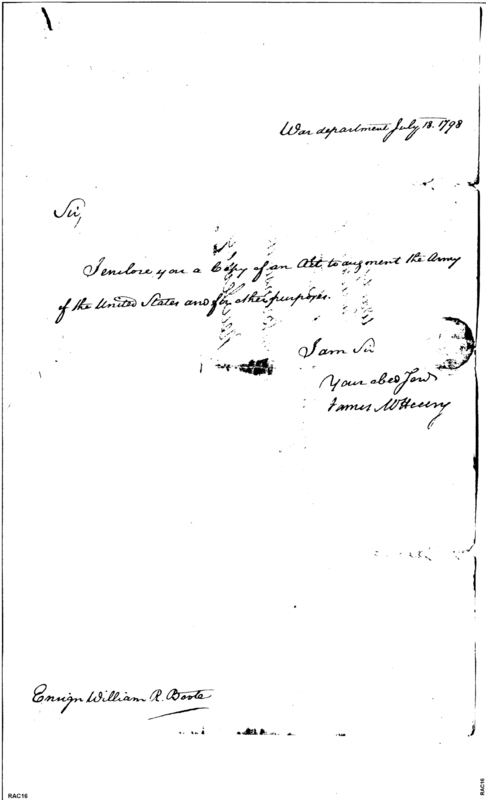 War department July 18. 1798
Sir,
I enclose you a Copy of an Act, to augment the Army
of the United States and for other purposes.
I am Sir
Your obed Serv
James McHenry
Ensign William R. Boote
RAC16
RAC16